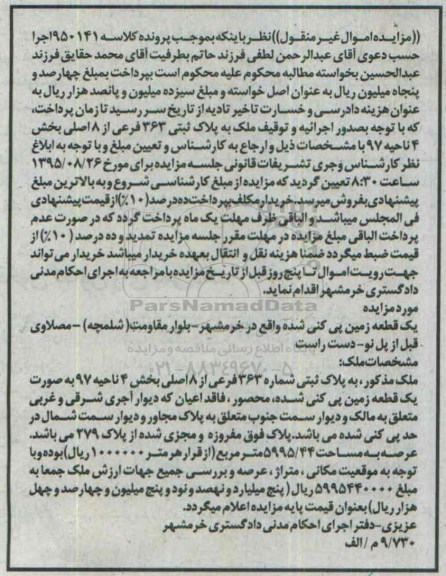 ((مزایده اموال غیر منقول))نظر باینکه بموجب پرونده کلاسه ۹۵۰۱۴۱اجرا
حسب دعوی آقای عبدالرحمن لطفی فرزند حاتم بطرفیت آقای محمد حقایق فرزند
عبدالحسین بخواسته مطالبه محکوم علیه محکوم است بپرداخت بمبلغ چهارصد و
پنجاه میلیون ریال به عنوان اصل خواسته و مبلغ سیزده میلیون و پانصد هزار ریال به
عنوان هزینه دادرسی و خسارت تاخیر تادیه از تاریخ سر رسید تا زمان پرداخت،
که با توجه بصدور اجرائیه و توقیف ملک به پلاک ثبتی ۳۶۳ فرعی از ۸اصلی بخش
۴ ناحیه ۹۷ با مشخصات ذیل و ارجاع به کارشناس و تعیین مبلغ و با توجه به ابلاغ
نظر کارشناس وجری تشریفات قانونی جلسه مزایده برای مورخ ۱۳۹۵/۰۸/۲۶
ساعت ۸:۳۰ تعیین گردید که مزایده از مبلغ کارشناسی شروع و به بالاترین مبلغ
پیشنهادی بفروش میرسد.خریدار مکلف بپرداخت ده درصد (۱۰٪)از قیمت پیشنهادی
فی المجلس میباشد و الباقی ظرف مهلت یک ماه پرداخت گردد که در صورت عدم
پرداخت الباقی مبلغ مزایده در مهلت مقرر جلسه مزایده تمدید و ده درصد (۱۰٪) از
قیمت ضبط میگردد ضمنا هزینه نقل و انتقال بعهده خریدار میباشد خریدار می تواند
جهت رویت اموال تا پنج روز قبل از تاریخ مزایده با مراجعه به اجرای احکام مدنی
دادگستری خرمشهر اقدام نماید.
مورد مزایده
یک قطعه زمین پی کنی شده واقع در خرمشهر-بلوار مقاومت( شلمچه) -مصلاوی
قبل از پل نو- دست راست
مشخصات ملک:
ملک مذکور ، به پلاک ثبتی شماره ۳۶۳ فرعی از ۸اصلی بخش ۴ ناحیه ۹۷ به صورت
یک قطعه زمین پی کنی شده، محصور ، فاقد اعیان که دیوار آجری شرقی و غربی
متعلق به مالک و دیوار سمت جنوب متعلق به پلاک مجاور و دیوار سمت شمال در
حد پی کنی شده می باشد.پلاک فوق مفروزه و مجزی شده از پلاک ۲۷۹ می باشد.
عرصه به مساحت ۵۹۹۵/۴۴متر مربع (از قرار هر متر ۱۰۰۰۰۰۰ ریال)بوده وبا
توجه به موقعیت مکانی ، متراژ ، عرصه و بررسی جمیع جهات ارزش ملک جمعا به
مبلغ ۵۹۹۵۴۴۰۰۰۰ ریال ( پنج میلیارد و نهصد و نود و پنج میلیون و چهارصد و چهل
هزار ریال) بعنوان قیمت پایه مزایده اعلام میگردد.
عزیزی-دفتر اجرای احکام مدنی دادگستری خرمشهر
۹/۷۳۰ م / الف
ParsNamadData
پایگاه اطلاع رسانی مناقصه و مزایده
۰۲۱-۸۸۳۴۹۶۷۰-۵